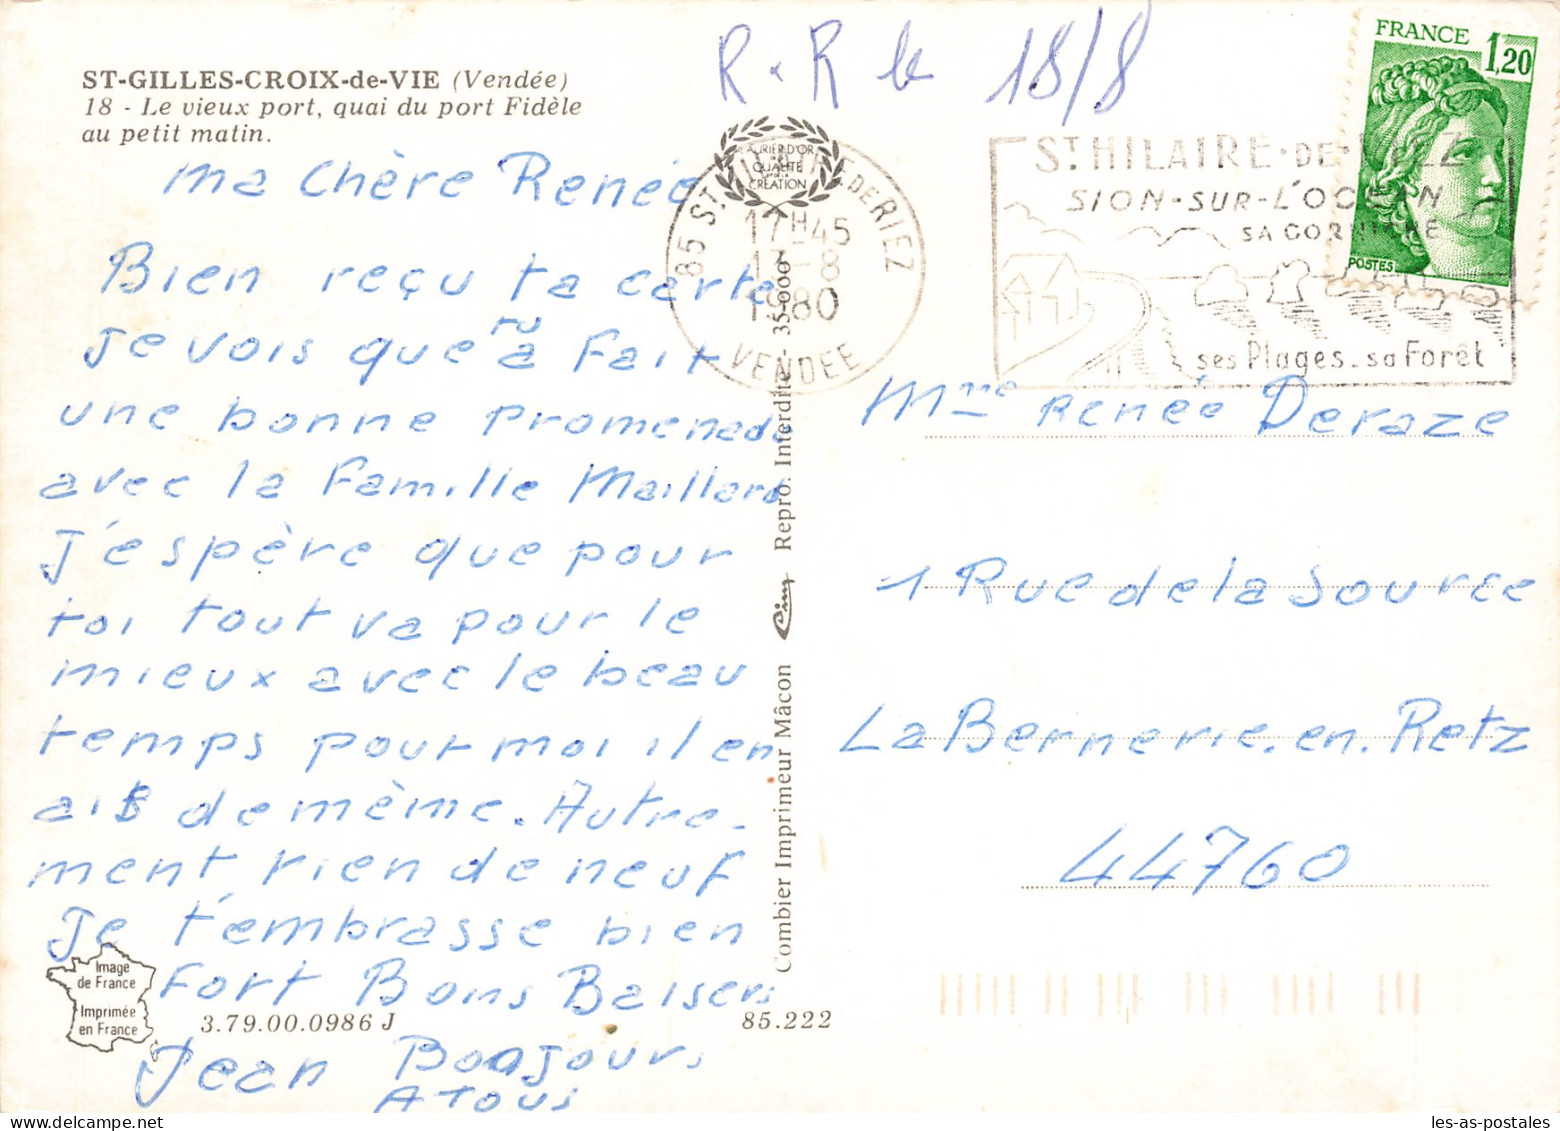 ST-GILLES-CROIX-de-VIE (Vendée)
18 - Le vieux port, quai du port Fidèle
au petit matin.
R.R le 18/8
FRANCE
1,20
POSTES
LAURIER D'OR
QUALITÉ
CRÉATION
85 ST HILAIRE DE RIEZ
17H45
1 -8
1980
VENDEE
ST HILAIRE-DE-RIEZ
SION-SUR-L'OCEAN
SA CORNICHE
ses Plages-sa Forêt
ma Chère Renée
Bien reçu ta carte
je vois que tu a Fait
une bonne promenade
avec la Famille Maillard
J'espère que pour
toi tout va pour le
mieux avec le beau
temps pour moi il en
ais de même. Autre-
ment rien de neuf
Je t'embrasse bien
Fort Bons Baisers
Jean Bonjours
A Tous
Mme Renée Deraze
1 Rue de la Source
La Bernerie.en.Retz
44760
Combier Imprimeur Mâcon Cim Repro. Interdite - 35-000
Image
de France
Imprimée
en France
3.79.00.0986 J
85.222
www.les-as-postales